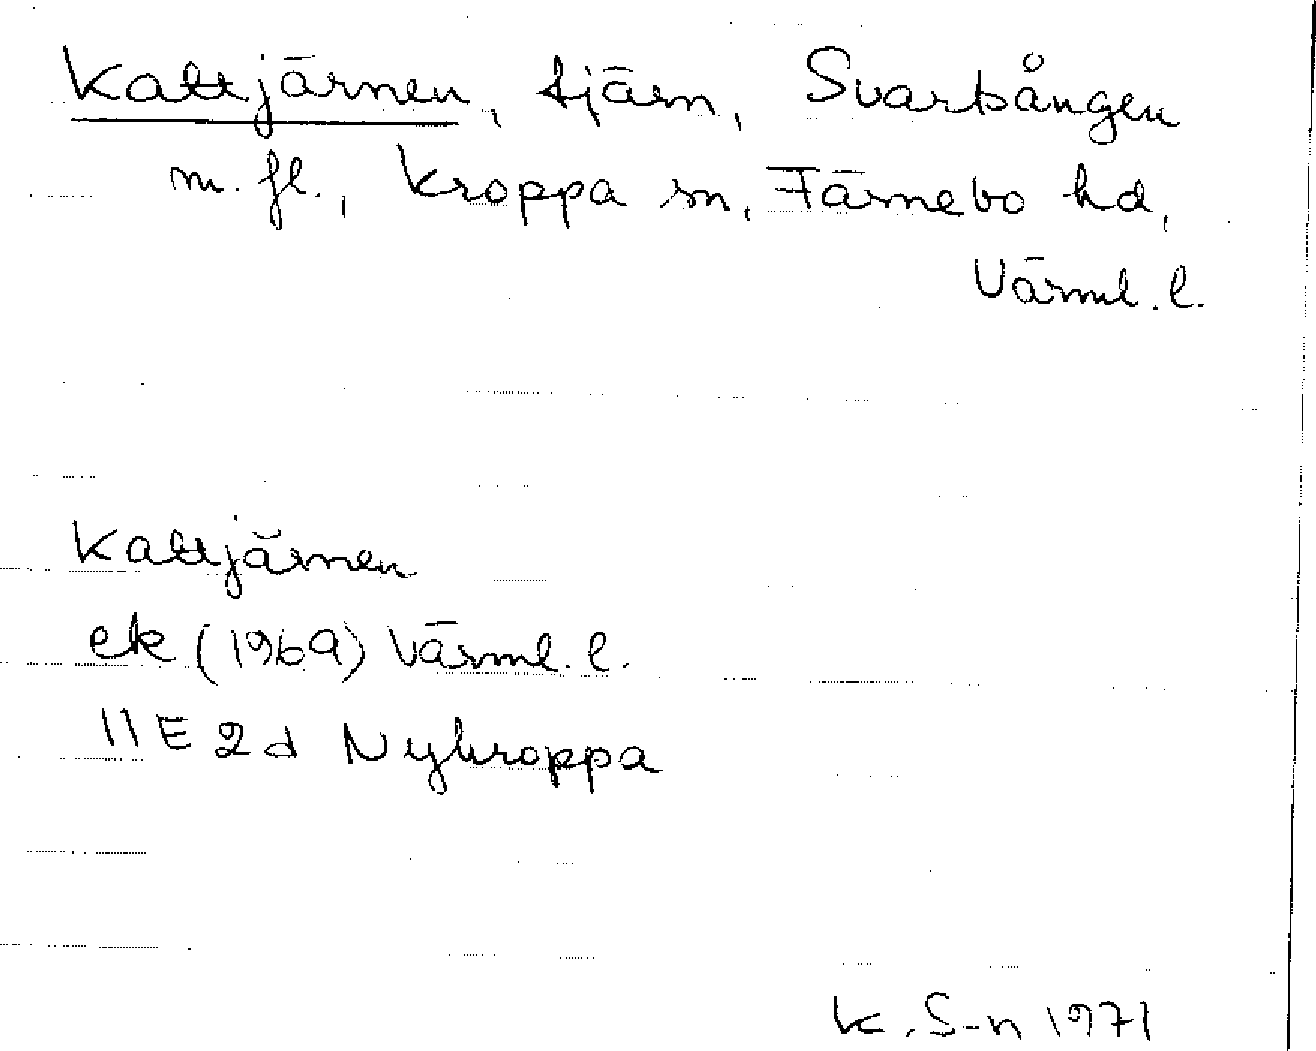 Kattjärnen, tjärn, Svartsången
m. fl., Kroppa sn, Färnebo hd,
Värml. l.
Kattjärnen
ek (1969) Värml. l.
11E 2d Nykroppa
K. S-n 1971